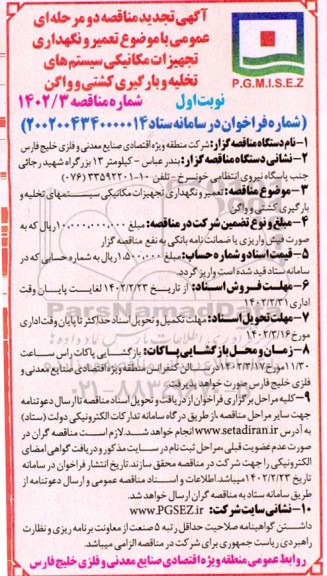 آگهی تجدید مناقصه دو مرحله ای
عمومی با موضوع تعمیر و نگهداری
تجهیزات مکانیکی سیستم های
تخلیه و بارگیری کشتی و واگن
P.G.M.I.S.E.Z
نوبت اول
شماره مناقصه ۱۴۰۲/۳
(شماره فراخوان در سامانه ستاد ۲۰۰۲۰۰۴۳۴۰۰۰۰۰۱۴)
۱-نام دستگاه مناقصه گزار: شرکت منطقه ویژه اقتصادی صنایع معدنی و فلزی خلیج فارس
۲-نشانی دستگاه مناقصه گزار: بندرعباس - کیلومتر ۱۳ بزرگراه شهید رجائی
جنب پاسگاه نیروی انتظامی خونسرخ - تلفن ۱۰-۳۳۵۹۲۲۰۱ (۰۷۶)
۳-موضوع مناقصه: تعمیر و نگهداری تجهیزات مکانیکی سیستمهای تخلیه و
بارگیری کشتی و واگن
۴-مبلغ و نوع تضمین شرکت در مناقصه: مبلغ ریال به
صورت فیش واریزی یا ضمانت نامه بانکی به نفع مناقصه گزار
۵-قیمت اسناد و شماره حساب: مبلغ ۱۵۰۰۰۰۰ ریال به شماره حسابی که در
سامانه ستاد قید شده است واریز گردد.
۶-مهلت فروش اسناد: از تاریخ ۱۴۰۲/۲/۲۳ لغایت پایان وقت
اداری ۱۴۰۲/۲/۳۱
۷-مهلت تحویل اسناد: مهلت تکمیل و تحویل اسناد حداکثر تا پایان وقت اداری
مورخ ۱۴۰۲/۳/۱۶
۸-زمان و محل بازگشایی پاکات: بازگشایی پاکات راس ساعت
۱۱/۳۰ مورخ ۱۴۰۲/۳/۱۷ در سالن کنفرانس منطقه ویژه اقتصادی صنایع معدنی و
فلزی خلیج فارس صورت خواهد پذیرفت
۹-کلیه مراحل برگزاری فراخوان از دریافت و تحویل اسناد مناقصه تا ارسال دعوتنامه
جهت سایر مراحل مناقصه از طریق درگاه سامانه تدارکات الکترونیکی دولت (ستاد)
به آدرس www.setadiran.ir انجام خواهد شد. لازم است مناقصه گران در
صورت عدم عضویت قبلی، مراحل ثبت نام در سایت مذکور و دریافت گواهی امضای
الکترونیکی را جهت شرکت در مناقصه محقق سازند. تاریخ انتشار فراخوان در سامانه
تاریخ ۱۴۰۲/۲/۲۳ میباشد. اطلاعات و اسناد مناقصه عمومی و ارسال دعوتنامه از
طریق سامانه ستاد به مناقصه گران ارسال خواهد شد.
۱۰-نشانی سایت شرکت: www.PGSEZ.ir
داشتن گواهینامه صلاحیت حداقل رتبه ۵ صنعت از معاونت برنامه ریزی و نظارت
راهبردی ریاست جمهوری برای شرکت در مناقصه الزامی میباشد.
روابط عمومی منطقه ویژه اقتصادی صنایع معدنی و فلزی خلیج فارس